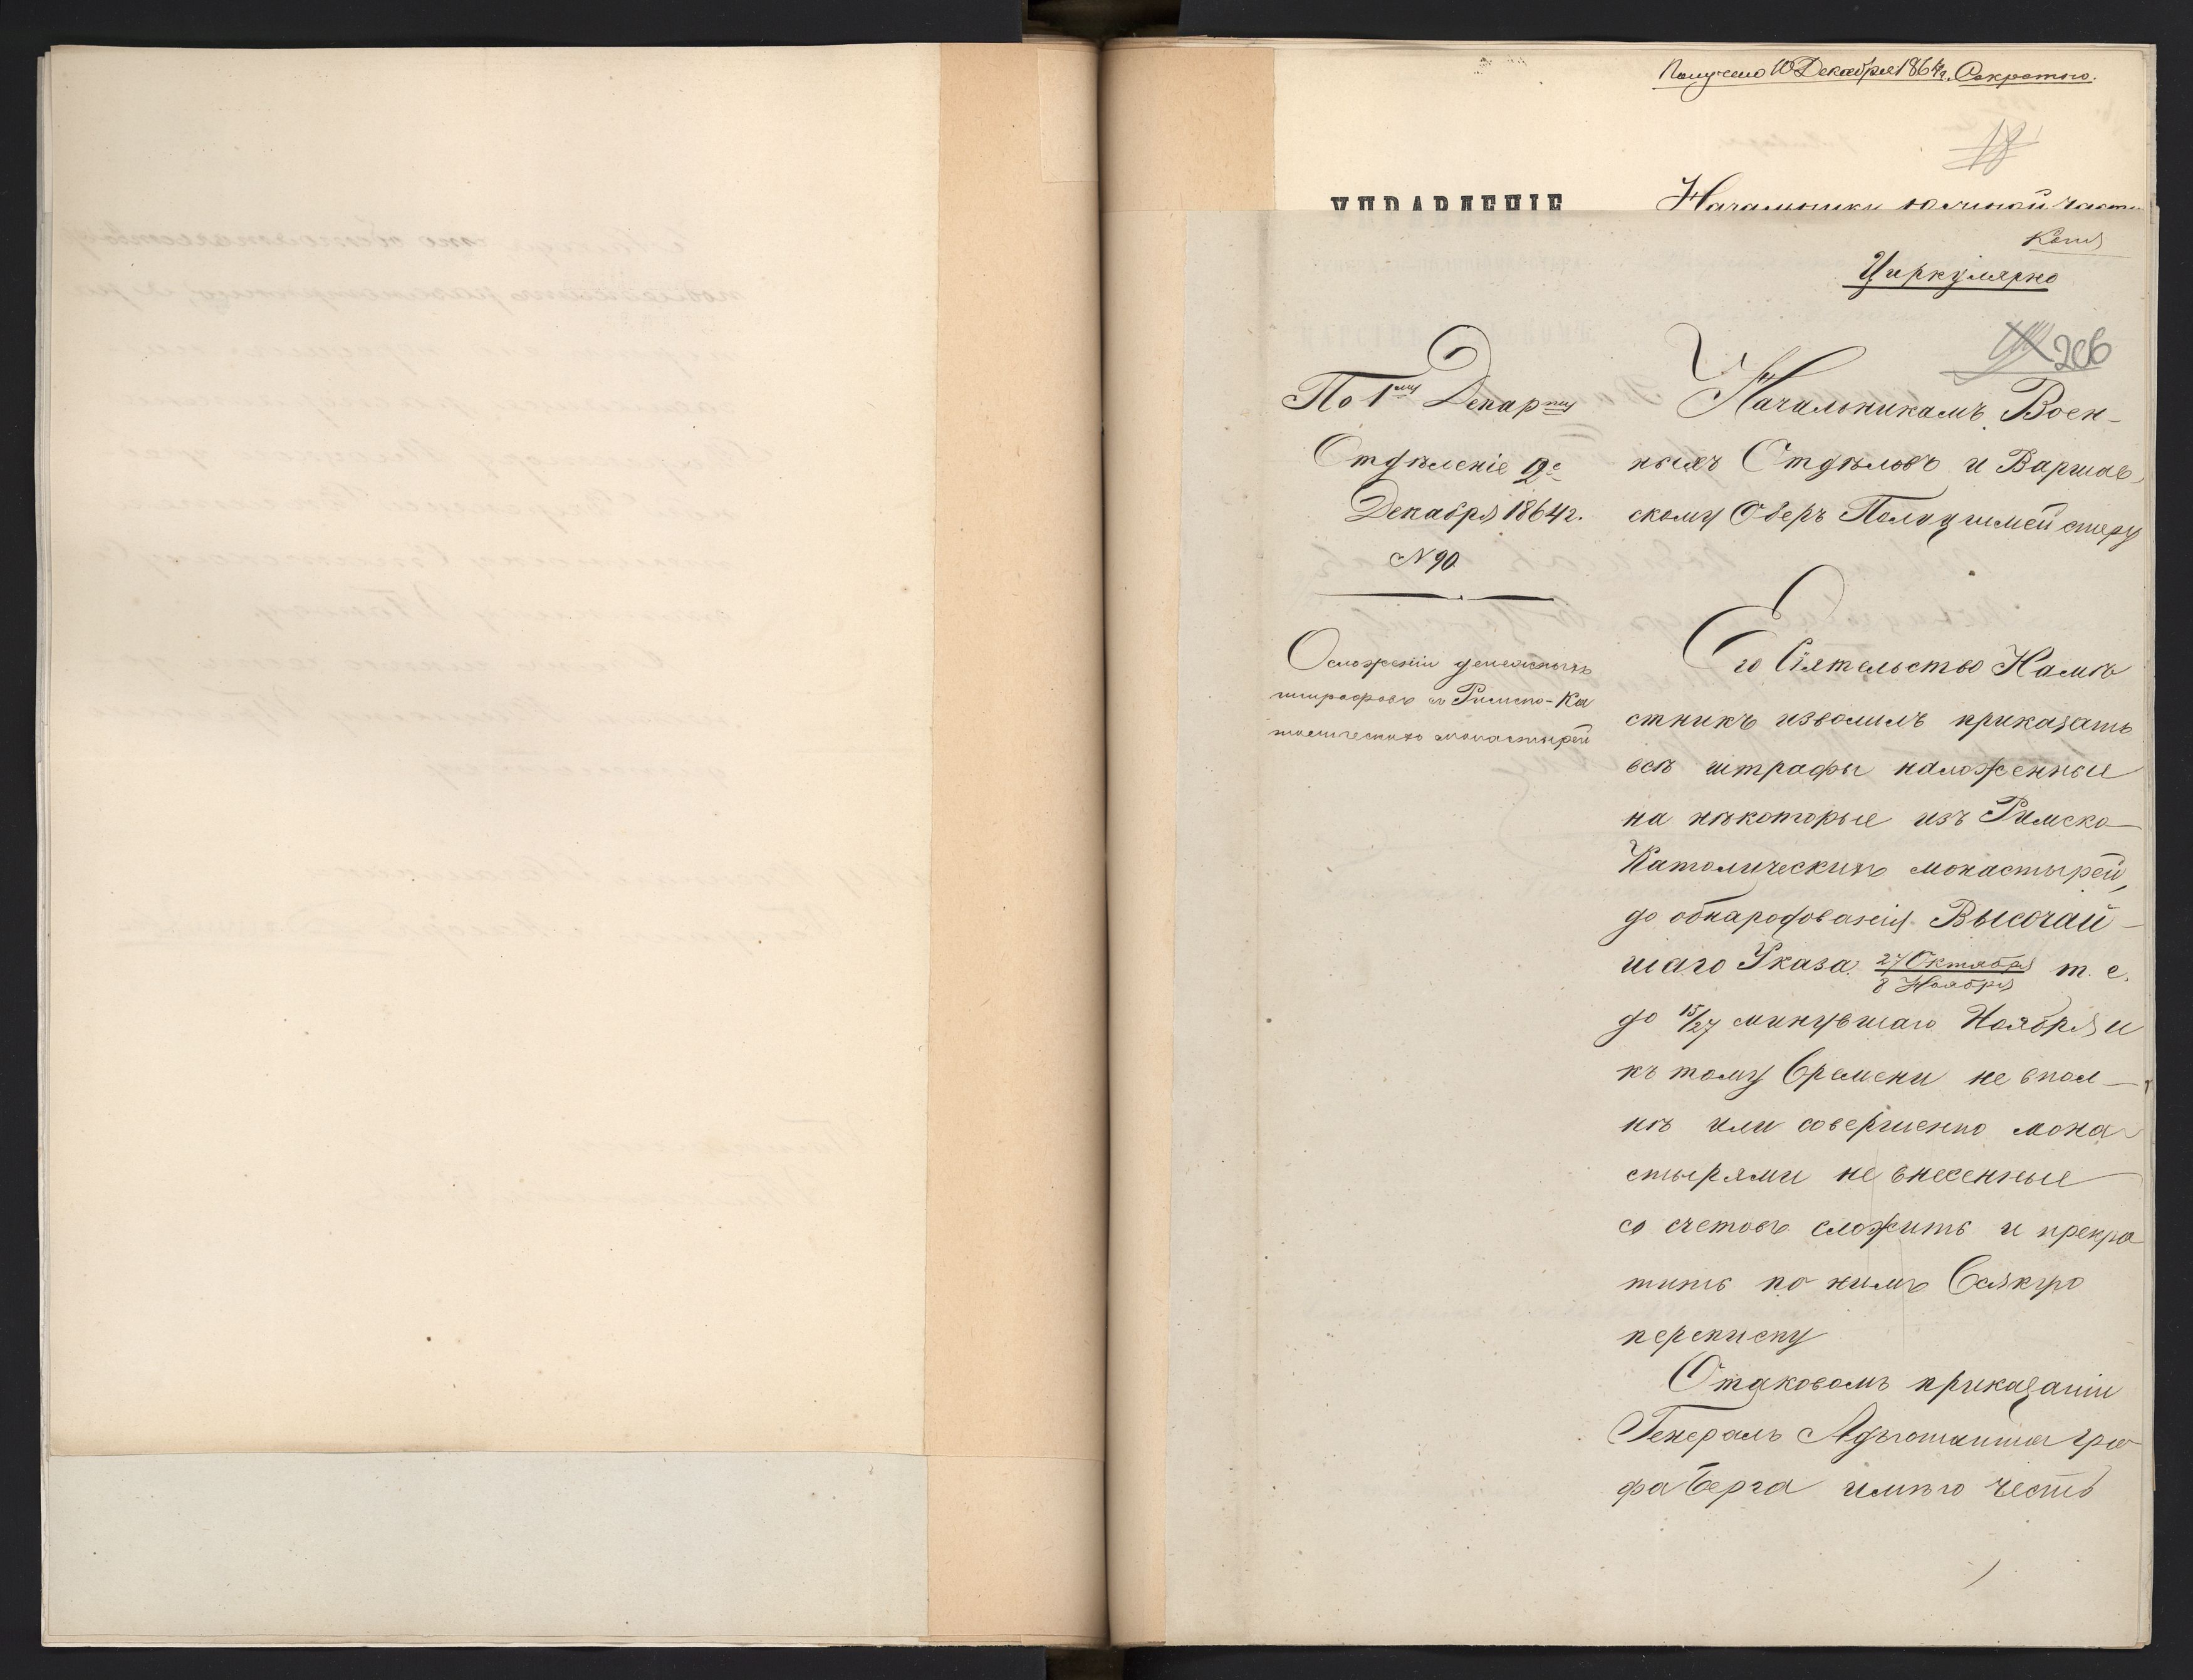 Получено 10 Декабря 1864 г. Секретно.
18
УПРАВЛЕНІЕ
Начальнику южной части
Копія
Циркулярно
206
По 1му Департу
Отдѣленіе 2е
Декабря 1864 г.
N 90.
Осложеніи денежныхъ
штрафовъ съ Римско-Ка
толическихъ монастырей
Начальникамъ Воен-
ныхъ Отдѣловъ и Варшав
скому Оберъ Полицiймейстеру
Его Сіятельство Намѣ
стникъ изволилъ приказать
всѣ штрафы наложенные
на нѣкоторые изъ Римско-
Католическихъ монастырей,
до обнародованія Высочай-
шаго Указа 27 Октября/8 Ноября т. е.
до 15/27 минувшаго Ноября и
къ тому времени не впол-
нѣ или совершенно мона
стырями не внесенные
со счетовъ сложить и прекра
тить по нимъ всякую
переписку
Отаковомъ приказаніи
Генералъ Адъютанта Гра
фа Берга имѣю честь